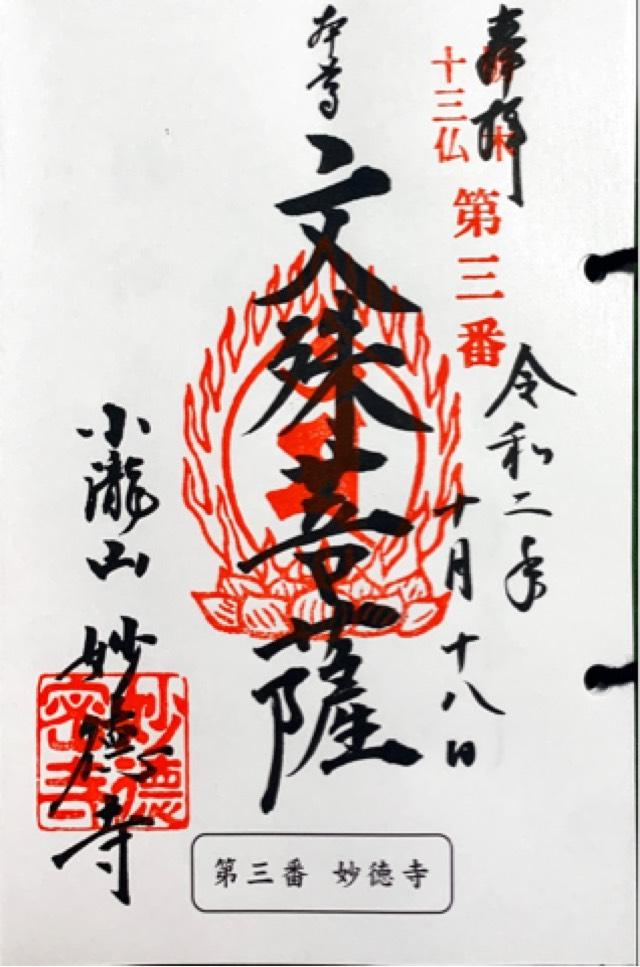 奉拝
栃木
十三仏
第三番
令和二年
十月十八日
本尊
文殊菩薩
小瀧山
妙徳寺
妙徳
密寺
第三番 妙徳寺